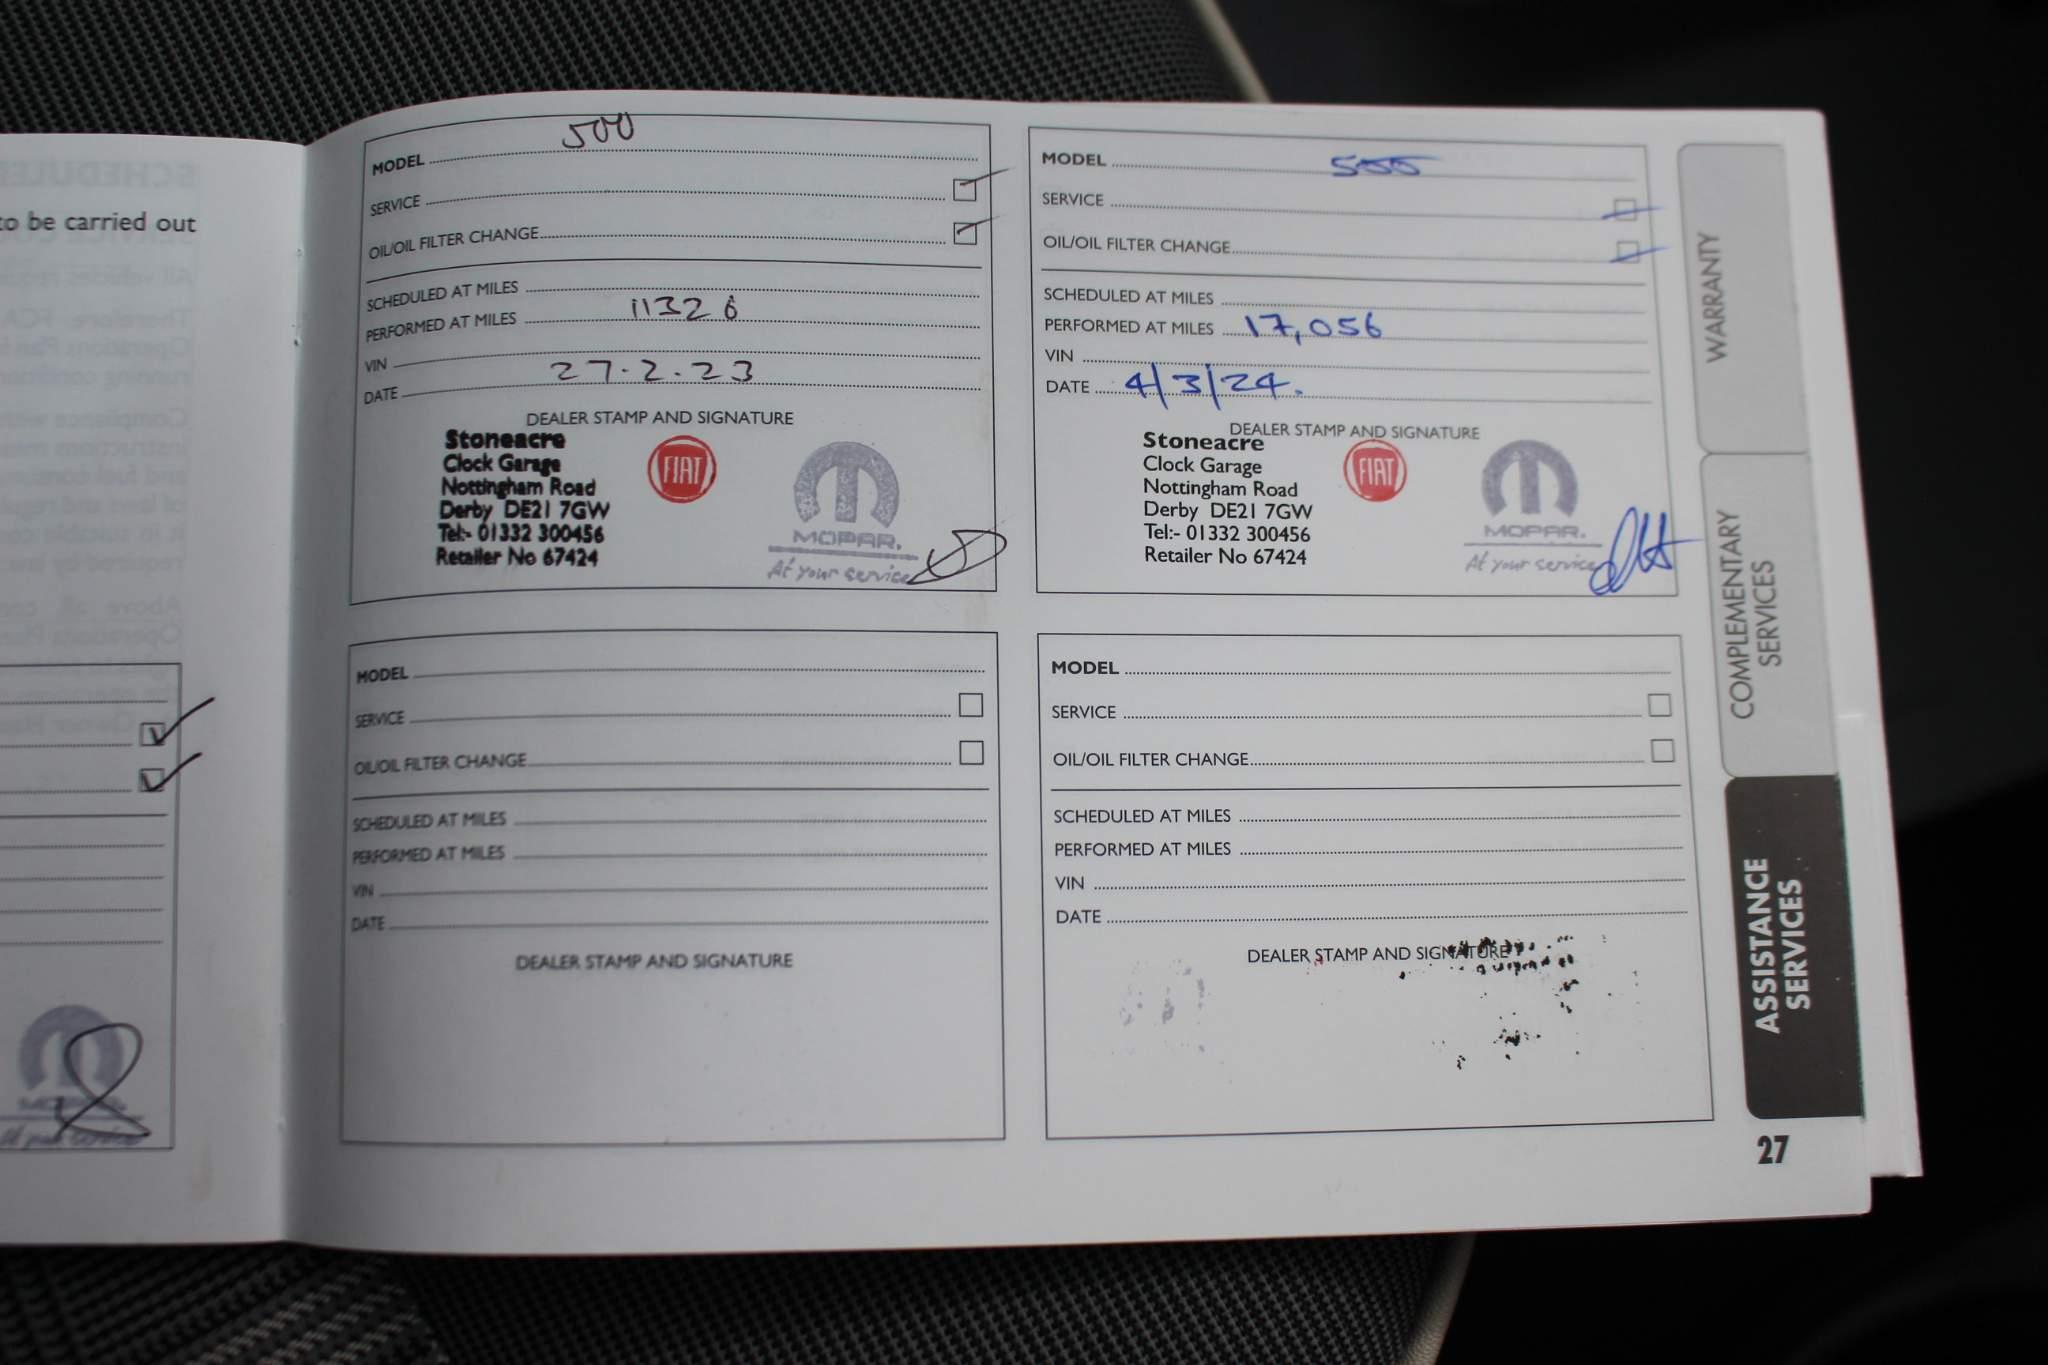 to be carried out
MODEL 500
SERVICE
OIL/OIL FILTER CHANGE
SCHEDULED AT MILES
PERFORMED AT MILES 11326
VIN
DATE 27.2.23
DEALER STAMP AND SIGNATURE
Stoneacre
Clock Garage
Nottingham Road
Derby DE21 7GW
Tel:- 01332 300456
Retailer No 67424
FIAT
MOPAR.
At your service
MODEL 500
SERVICE
OIL/OIL FILTER CHANGE
SCHEDULED AT MILES
PERFORMED AT MILES 17,056
VIN
DATE 4/3/24.
DEALER STAMP AND SIGNATURE
Stoneacre
Clock Garage
Nottingham Road
Derby DE21 7GW
Tel:- 01332 300456
Retailer No 67424
FIAT
MOPAR.
At your service
MODEL
SERVICE
OIL/OIL FILTER CHANGE
SCHEDULED AT MILES
PERFORMED AT MILES
VIN
DATE
DEALER STAMP AND SIGNATURE
MODEL
SERVICE
OIL/OIL FILTER CHANGE
SCHEDULED AT MILES
PERFORMED AT MILES
VIN
DATE
DEALER STAMP AND SIGNATURE
WARRANTY
COMPLEMENTARY
SERVICES
ASSISTANCE
SERVICES
27